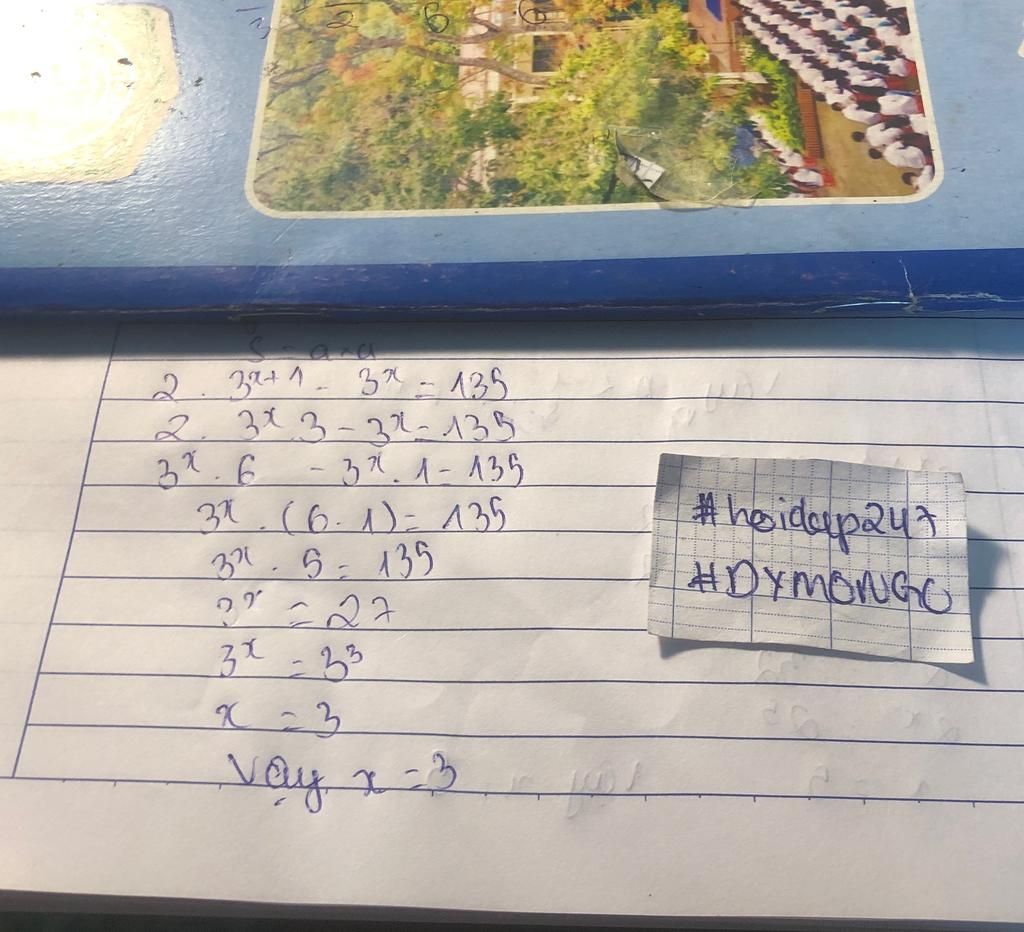 2 . 3^x+1 - 3^x = 135
2. 3^x.3 - 3^x = 135
3^x . 6 - 3^x . 1 = 135
3^x . (6 - 1) = 135
3^x . 5 = 135
3^x = 27
3^x = 3^3
x = 3
Vậy x = 3
#hoidap247
#DYMONGO